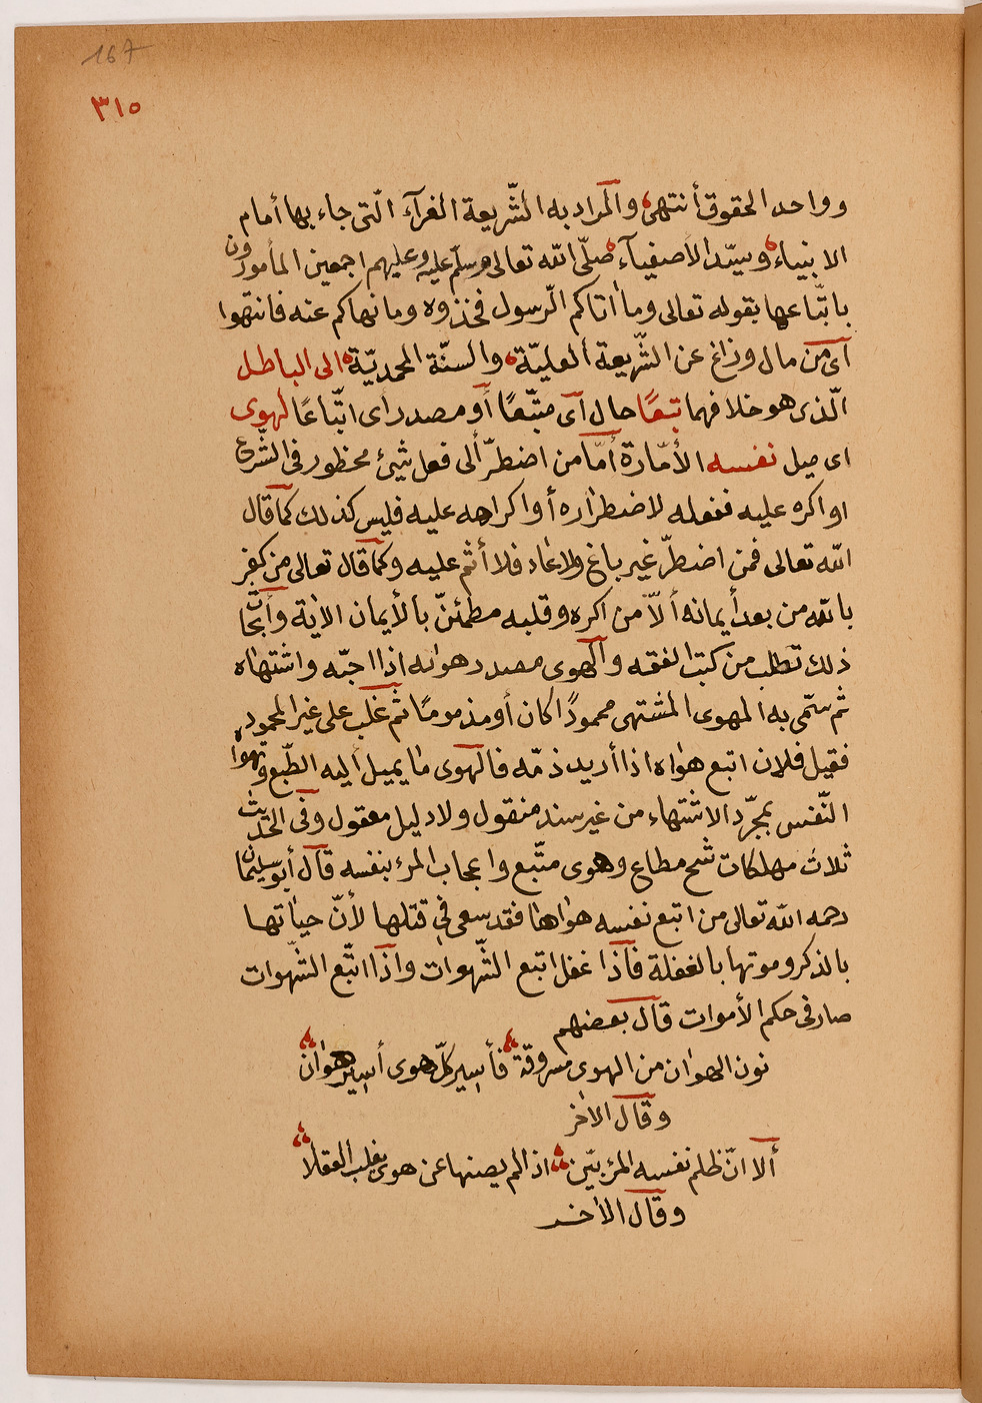 167
٣١٥
وواحد الحقوق أنتهى والمراد به الشّريعة الغرآء الّتى جاء بها أمام
الانبياء وسيّد الاصفيآء صلّى الله تعالى وسلّم عليه وعليهم اجمعين المأمورون
باتّباعها بقوله تعالى وما اٰتاكم الرّسول فخذوه وما نهاكم عنه فانتهوا
آى من مال وزاغ عن الشّريعة العليّة والسنّة المحمديّة الى الباطل
الّذى هو خلافهما تبعًا حال آى متّبعًا أو مصدر اى اتّباعًا لهوى
اى ميل نفسه الأمّارة أمّا من اضطرّ ألى فعل شيئ محظور فى الشّرع
او اكره عليه ففعله لاضطراره أو اكراهه عليه فليس كذلك كما قال
الله تعالى فمن اضطرّ غير باغ ولاعاد فلا أثم عليه وكما قال تعالى من كفر
بالله من بعد أيمانه ألاّ من اكره وقلبه مطمئنّ بالأيمان الاٰية وأبحاث
ذلك تطلب من كتب الفقه والهوى مصدر هواه اذا احبّه واشتهاه
ثم سمّى به المهوى المشتهى محمودًا كان أو مذمومًا ثم غلب على غير المحمود
فقيل فلان اتبع هواه اذا أريد ذمّه فالهوى ما يميل أليه الطّبع وتهواه
النّفس بمجرّد الاشتهاء من غير سند منقول ولا دليل معقول وفى الحديث
ثلاث مهلكات شح مطاع وهوى متّبع واعجاب المرء بنفسه قال أبو سليمان
رحمه الله تعالى من اتبع نفسه هواها فقد سعى فى قتلها لأنّ حياتها
بالذكر وموتها بالغفلة فاذا غفل اتبع الشّهوات واذا اتّبع الشّهوات
صار فى حكم الأموات قال بعضهم
نون الهوان من الهوى مسروقة فأسير كلّ هوى أسير هوان
وقال الاٰخر
ألا انّ ظلم نفسه المرء بيّن اذا لم يصنها عن هوى يغلب العقلا
وقال الاٰخر